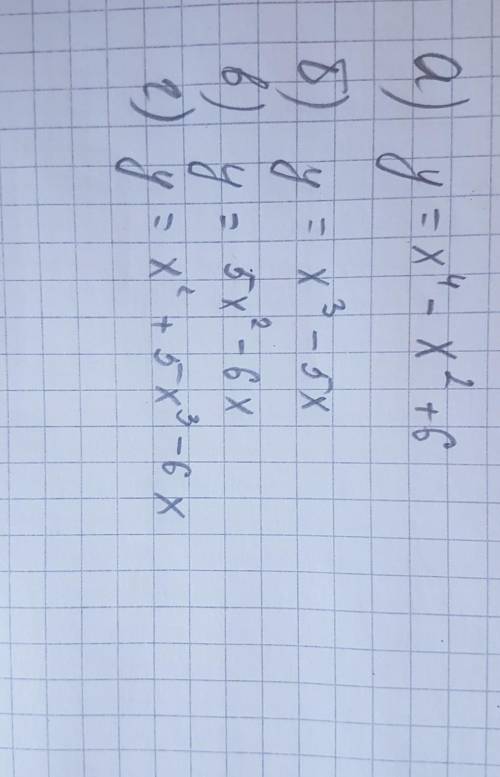 а) y = x⁴ - x² + 6
б) y = x³ - 5x
в) y = 5x² - 6x
г) y = x² + 5x³ - 6x